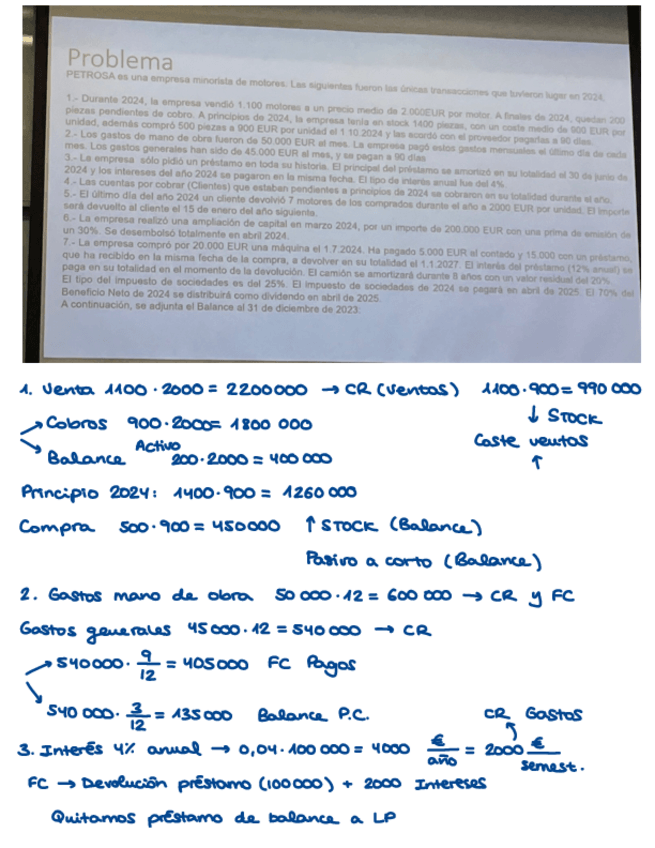 Problema
PETROSA es una empresa minorista de motores. Las siguientes fueron las únicas transacciones que tuvieron lugar en 2024.
1.- Durante 2024, la empresa vendió 1.100 motores a un precio medio de 2.000EUR por motor. A finales de 2024, quedan 200
piezas pendientes de cobro. A principios de 2024, la empresa tenía en stock 1400 piezas, con un coste medio de 900 EUR por
unidad, además compró 500 piezas a 900 EUR por unidad el 1.10.2024 y las acordó con el proveedor pagarlas a 90 días.
2.- Los gastos de mano de obra fueron de 50.000 EUR al mes. La empresa pagó estos gastos mensuales el último día de cada
mes. Los gastos generales han sido de 45.000 EUR al mes, y se pagan a 90 días
3.- La empresa sólo pidió un préstamo en toda su historia. El principal del préstamo se amortizó en su totalidad el 30 de junio de
2024 y los intereses del año 2024 se pagaron en la misma fecha. El tipo de interés anual fue del 4%.
4.- Las cuentas por cobrar (Clientes) que estaban pendientes a principios de 2024 se cobraron en su totalidad durante el año.
5.- El último día del año 2024 un cliente devolvió 7 motores de los comprados durante el año a 2000 EUR por unidad. El importe
será devuelto al cliente el 15 de enero del año siguiente.
6.- La empresa realizó una ampliación de capital en marzo 2024, por un importe de 200.000 EUR con una prima de emisión de
un 30%. Se desembolsó totalmente en abril 2024.
7.- La empresa compró por 20.000 EUR una máquina el 1.7.2024. Ha pagado 5.000 EUR al contado y 15.000 con un préstamo,
que ha recibido en la misma fecha de la compra, a devolver en su totalidad el 1.1.2027. El interés del préstamo (12% anual) se
paga en su totalidad en el momento de la devolución. El camión se amortizará durante 8 años con un valor residual del 20%.
El tipo del impuesto de sociedades es del 25%. El impuesto de sociedades de 2024 se pagará en abril de 2025. El 70% del
Beneficio Neto de 2024 se distribuirá como dividendo en abril de 2025.
A continuación, se adjunta el Balance al 31 de diciembre de 2023:
1. Venta 1100 · 2000 = 2200000 → CR (Ventas) 1100 · 900 = 990 000
↓ STOCK
Cobros 900 · 2000 = 1800 000
Coste ventas ↑
Activo
Balance 200 · 2000 = 400 000
Principio 2024: 1400 · 900 = 1260 000
Compra 500 · 900 = 450000 ↑ STOCK (Balance)
Pasivo a corto (Balance)
2. Gastos mano de obra 50 000 · 12 = 600 000 → CR y FC
Gastos generales 45 000 · 12 = 540 000 → CR
→ 540000 · 9/12 = 405000 FC Pagos
540 000 · 3/12 = 135000 Balance P.C.
CR Gastos
3. Interés 4% anual → 0,04 · 100 000 = 4000 €/año = 2000 €/semest.
FC → Devolución préstamo (100 000) + 2000 Intereses
Quitamos préstamo de balance a LP